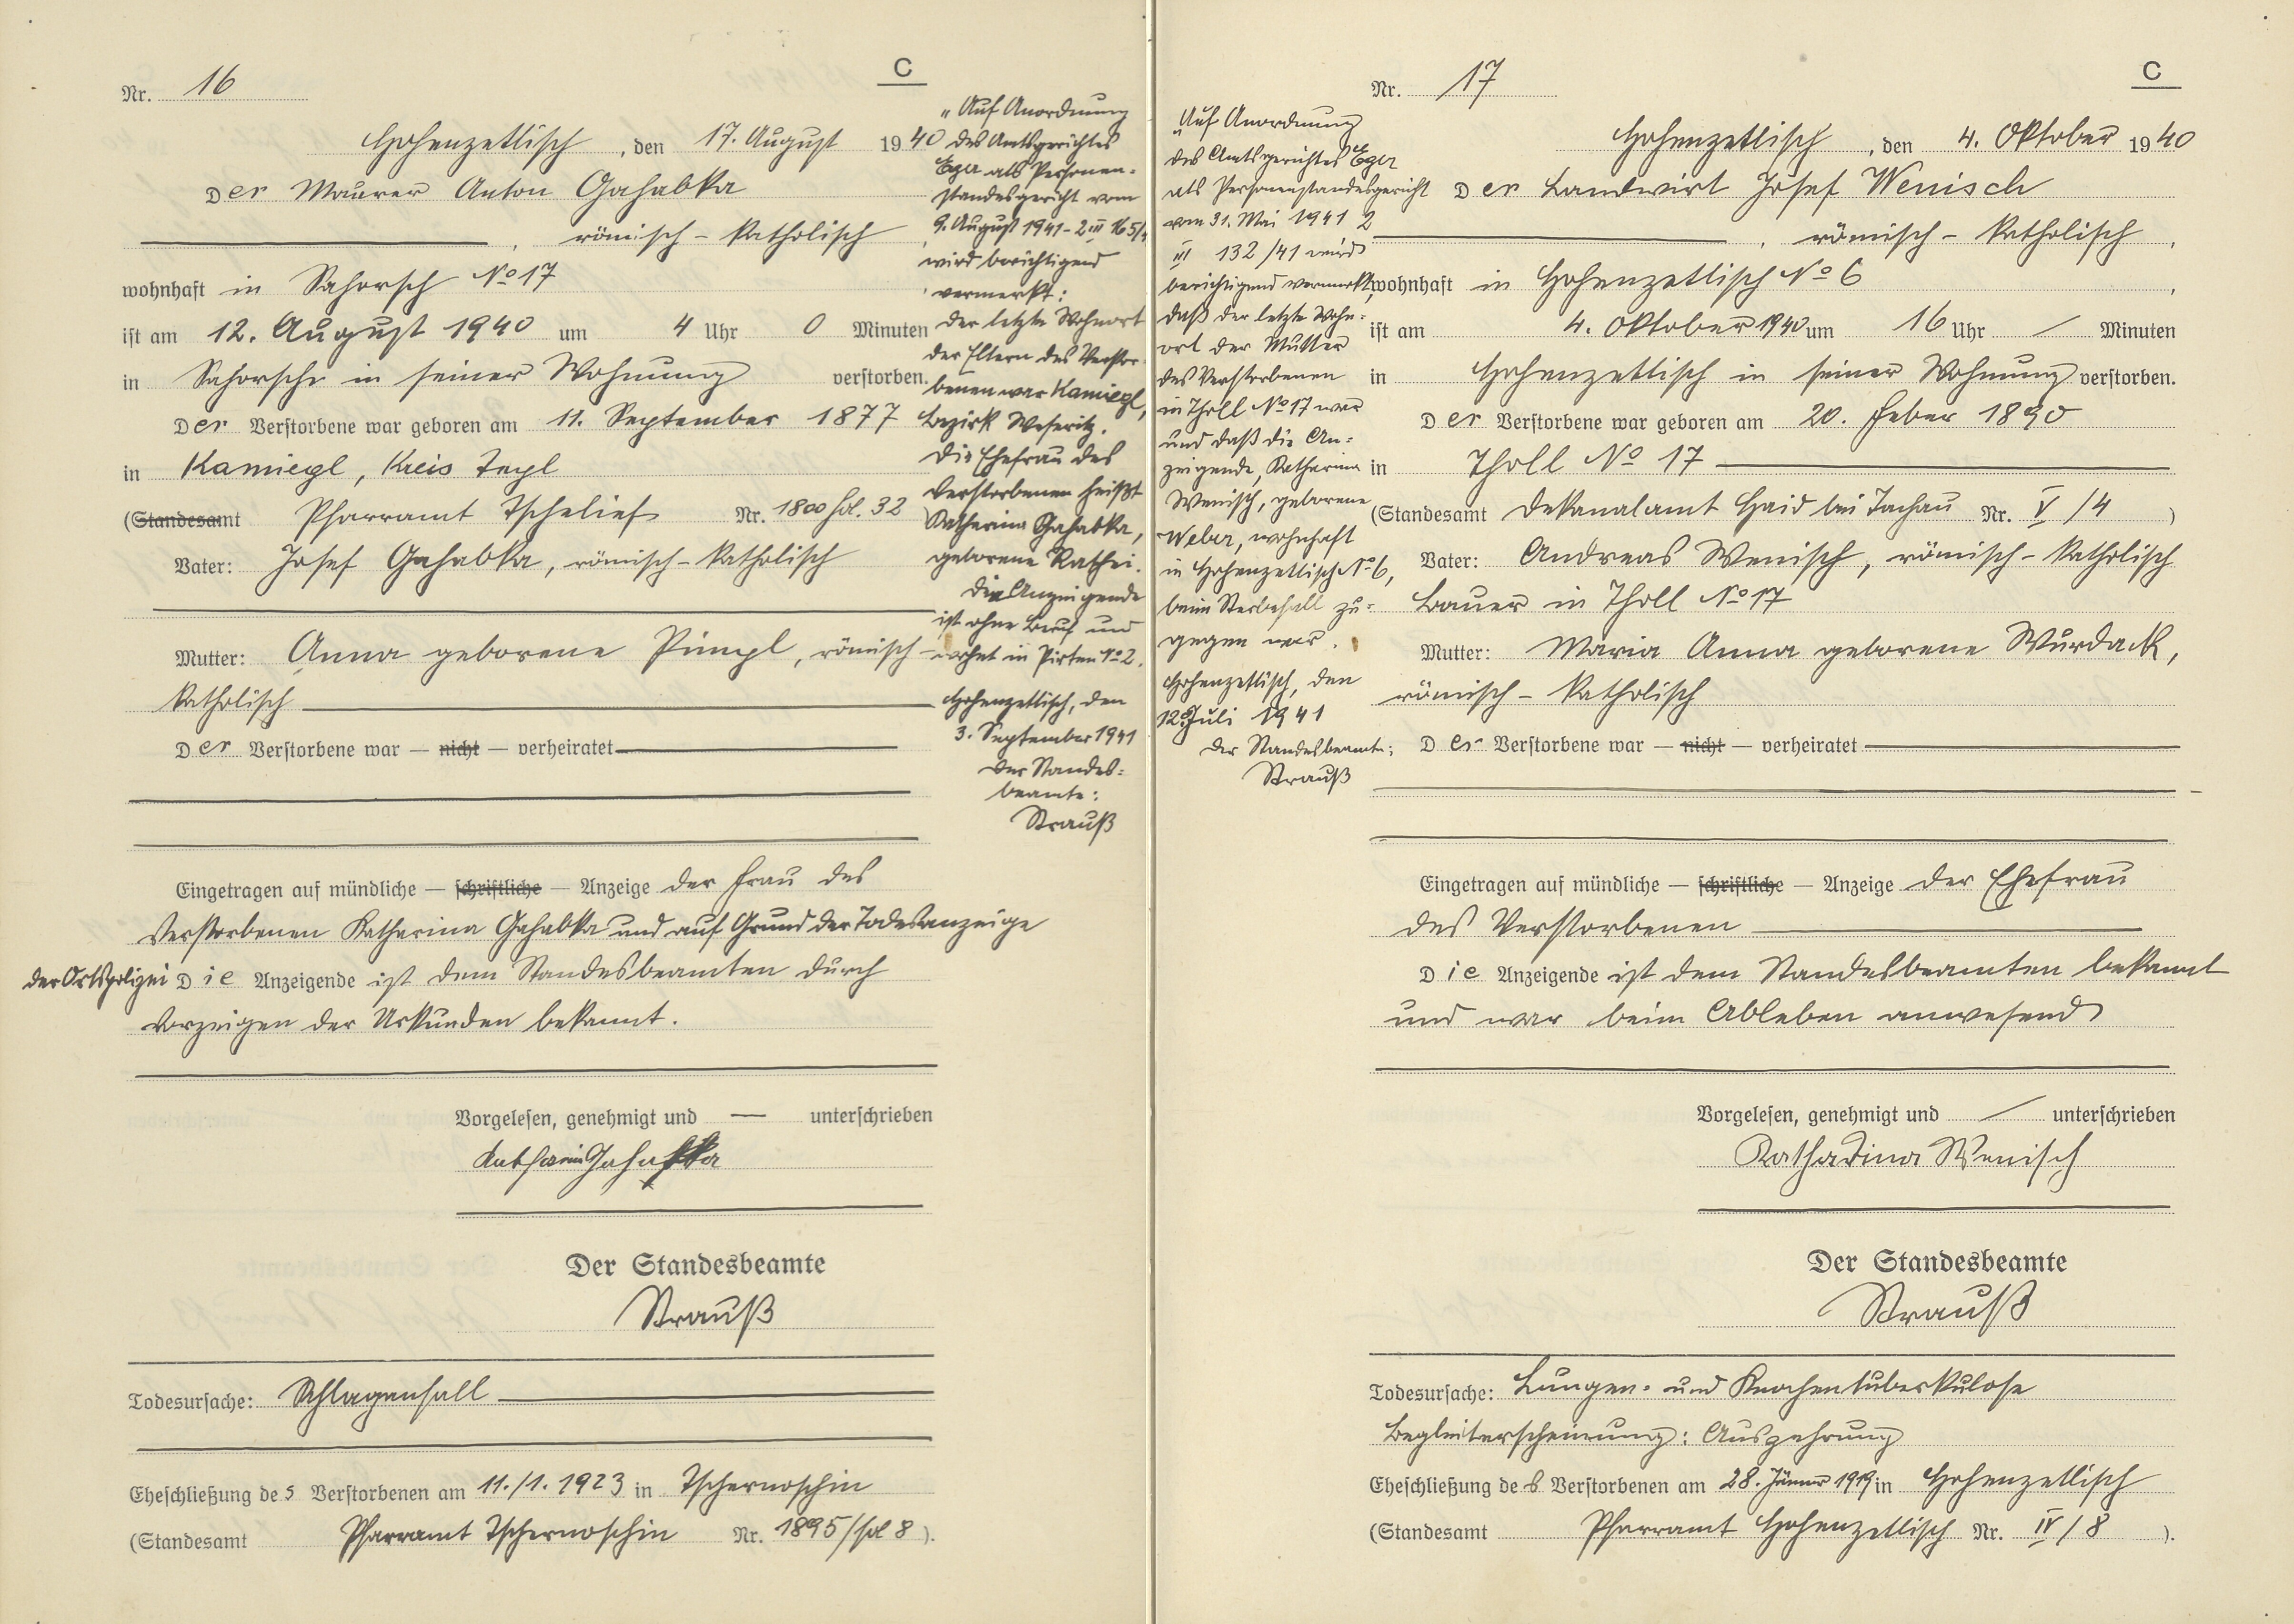 Nr. 16
C
Hohenzetlisch, den 17. August 1940
Der Maurer Anton Gahabka
römisch-katholisch
wohnhaft in Sahorsch No 17
ist am 12. August 1940 um 4 Uhr 0 Minuten
in Sahorsch in seiner Wohnung verstorben.
Der Verstorbene war geboren am 11. September 1877
in Kamiegl, Kreis Tepl
(Standesamt Pfarramt Tschelief Nr. 1800 fol. 32
Vater: Josef Gahabka, römisch-katholisch
Mutter: Anna geborene Pimpl, römisch-
katholisch
Der Verstorbene war — nicht — verheiratet
Eingetragen auf mündliche — schriftliche — Anzeige der Frau des
Verstorbenen Katharina Gahabka und auf Grund der Todesanzeige
der Ortspolizei Die Anzeigende ist dem Standesbeamten durch
Vorzeigen der Urkunden bekannt.
Vorgelesen, genehmigt und — unterschrieben
Katharina Gahabka
Der Standesbeamte
Strauß
Todesursache: Schlaganfall
Eheschließung des Verstorbenen am 11./1. 1923 in Tschernoschin
(Standesamt Pfarramt Tschernoschin Nr. 1895/fol 8).
„Auf Anordnung
des Amtsgerichtes
Eger als Personen-
standesgericht vom
9. August 1941 - 2 III 165/4
wird berichtigend
vermerkt:
Der letzte Wohnort
der Eltern des Verstor-
benen war Kamiegl,
Bezirk Weseritz.
Die Ehefrau des
Verstorbenen heißt
Katharina Gahabka,
geborene Rathei.
Die Anzeigende
ist ohne Beruf und
wohnt in Pirten No 2.
Hohenzetlisch, den
3. September 1941
Der Standes-
beamte:
Strauß
Nr. 17
C
Hohenzetlisch, den 4. Oktober 1940
Der Landwirt Josef Wenisch
römisch-katholisch,
wohnhaft in Hohenzetlisch No 6,
ist am 4. Oktober 1940 um 16 Uhr / Minuten
in Hohenzetlisch in seiner Wohnung verstorben.
Der Verstorbene war geboren am 20. Feber 1890
in Tholl No 17
(Standesamt Dekanalamt Haid bei Tachau Nr. V/4)
Vater: Andreas Wenisch, römisch-katholisch
Bauer in Tholl No 17
Mutter: Maria Anna geborene Wurdack,
römisch-katholisch
Der Verstorbene war — nicht — verheiratet
Eingetragen auf mündliche — schriftliche — Anzeige der Ehefrau
des Verstorbenen
Die Anzeigende ist dem Standesbeamten bekannt
und war beim Ableben anwesend
Vorgelesen, genehmigt und / unterschrieben
Katharina Wenisch
Der Standesbeamte
Strauß
Todesursache: Lungen- und Knochentuberkulose
Begleiterscheinung: Auszehrung
Eheschließung des Verstorbenen am 28. Jänner 1919 in Hohenzetlisch
(Standesamt Pfarramt Hohenzetlisch Nr. IV/8).
„Auf Anordnung
des Amtsgerichtes Eger
als Personenstandesgericht
vom 31. Mai 1941 2
III 132/41 wird
berichtigend vermerkt,
daß der letzte Wohn-
ort der Mutter
des Verstorbenen
in Tholl No 17 war
und daß die An-
zeigende, Katharina
Wenisch, geborene
Weber, wohnhaft
in Hohenzetlisch No 6,
beim Sterbefall zu-
gegen war.
Hohenzetlisch, den
12. Juli 1941
Der Standesbeamte:
Strauß